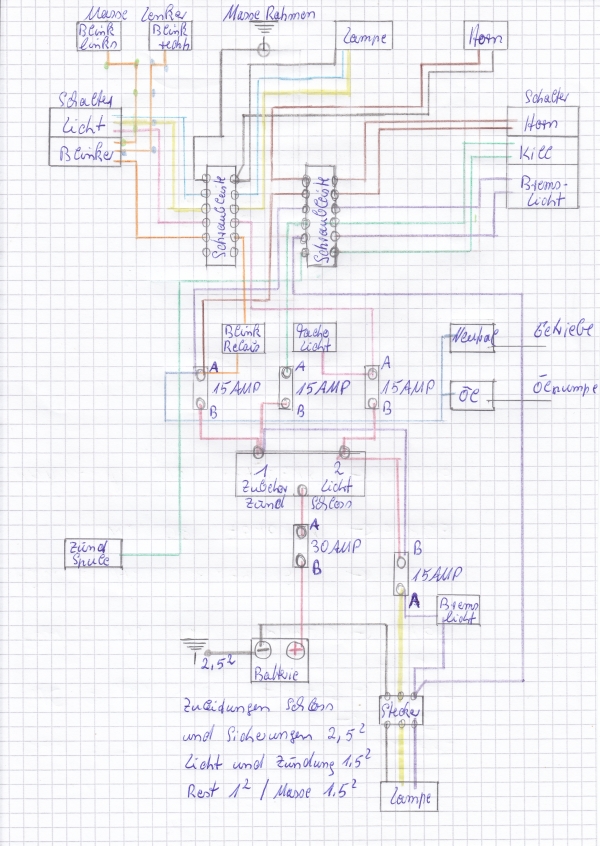 Masse Lenker
Blink
links
Blink
rechts
Masse Rahmen
Lampe
Horn
Schalter
Licht
Blinker
Schalter
Horn
Kill
Brems-
licht
Schraubleiste
Schraubleiste
Blink
Relais
Tacho
Licht
Neutral
Getriebe
A
15 AMP
B
A
15 AMP
B
A
15 AMP
B
ÖL
Ölpumpe
1
Zubehör
2
Licht
Zünd
Schloss
A
30 AMP
B
Zünd
Spule
B
15 AMP
A
Brems
licht
2,5²
− +
Batterie
Stecker
Zuleidungen Schloss
und Sicherungen 2,5²
Licht und Zündung 1,5²
Rest 1² / Masse 1,5²
Lampe